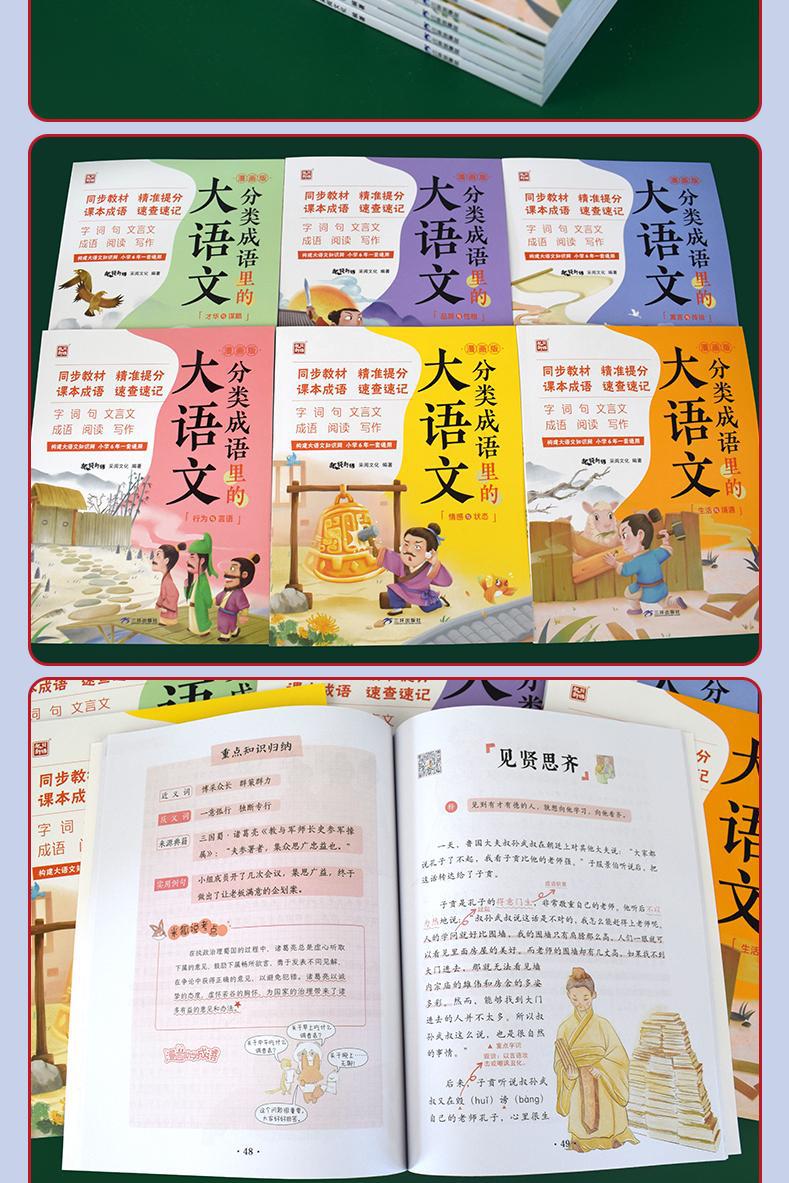 漫画版
同步教材 精准提分
课本成语 速查速记
字 词 句 文言文
成语 阅读 写作
构建大语文知识网 小学6年一套通用
采阅文化 编著
分类成语里的
大语文
「才华与谋略」
漫画版
同步教材 精准提分
课本成语 速查速记
字 词 句 文言文
成语 阅读 写作
构建大语文知识网 小学6年一套通用
采阅文化 编著
分类成语里的
大语文
「品质与性格」
漫画版
同步教材 精准提分
课本成语 速查速记
字 词 句 文言文
成语 阅读 写作
构建大语文知识网 小学6年一套通用
采阅文化 编著
分类成语里的
大语文
「寓言与传说」
漫画版
同步教材 精准提分
课本成语 速查速记
字 词 句 文言文
成语 阅读 写作
构建大语文知识网 小学6年一套通用
采阅文化 编著
分类成语里的
大语文
「行为与言语」
三环出版社
漫画版
同步教材 精准提分
课本成语 速查速记
字 词 句 文言文
成语 阅读 写作
构建大语文知识网 小学6年一套通用
采阅文化 编著
分类成语里的
大语文
「情感与状态」
三环出版社
漫画版
同步教材 精准提分
课本成语 速查速记
字 词 句 文言文
成语 阅读 写作
构建大语文知识网 小学6年一套通用
采阅文化 编著
分类成语里的
大语文
「生活与境遇」
三环出版社
本成语 速查速记
词 句 文言文
速查速记
同步教材
课本成语
字 词
成语 阅
大语文
「生活
重点知识归纳
近义词 博采众长 群策群力
反义词 一意孤行 独断专行
来源典籍 三国蜀·诸葛亮《教与军师长史参军掾
属》：“夫参署者，集众思广忠益也。”
实用例句 小组成员开了几次会议，集思广益，终于
做出了让老板满意的企划案。
米狐说考点
在执政治理蜀国的过程中，诸葛亮总是虚心听取
下属的意见，鼓励下属畅所欲言，勇于发表不同见解，
在争论中获得正确的意见，以避免犯错。诸葛亮以诚
挚的态度，虚怀若谷的胸怀，为国家的治理带来了诸
多有益的意见和办法。
漫当叫成语
关于早上吃什么
请查看？
关于中午吃什么
请查看？
关于晚上……
这个问题很重要，
大家好好回答。
·48·
「见贤思齐」
释 见到有才有德的人，就想向他学习，向他看齐。
一天，鲁国大夫叔孙武叔在朝廷上对其他大夫说：“大家都
说孔子了不起，我看子贡比他的老师强。”子服景伯听说后，把
这话转达给了子贡。
子贡是孔子的得意门生，非常敬重自己的老师。他听后不以
为然地说：“叔孙武叔说这话是不对的，我怎么能赶得上老师呢，
人的学问就好比围墙，我的围墙只有肩膀那么高，人们一眼就可
以看见里面房屋的美好，而老师的围墙却有几丈高，如果找不到
大门进去，那就无法看见墙
内宗庙的雄伟和房舍的多姿
多彩。然而，能够找到大门
进去的人并不太多。所以叔
孙武叔这么说，也是很自然
的事情。”
▲重点字词
毁谤：以言语攻
击或嘲讽丑化。
后来，子贡听说叔孙武
叔又在毁（huǐ）谤（bàng）
自己的老师孔子，心里很生
·49·